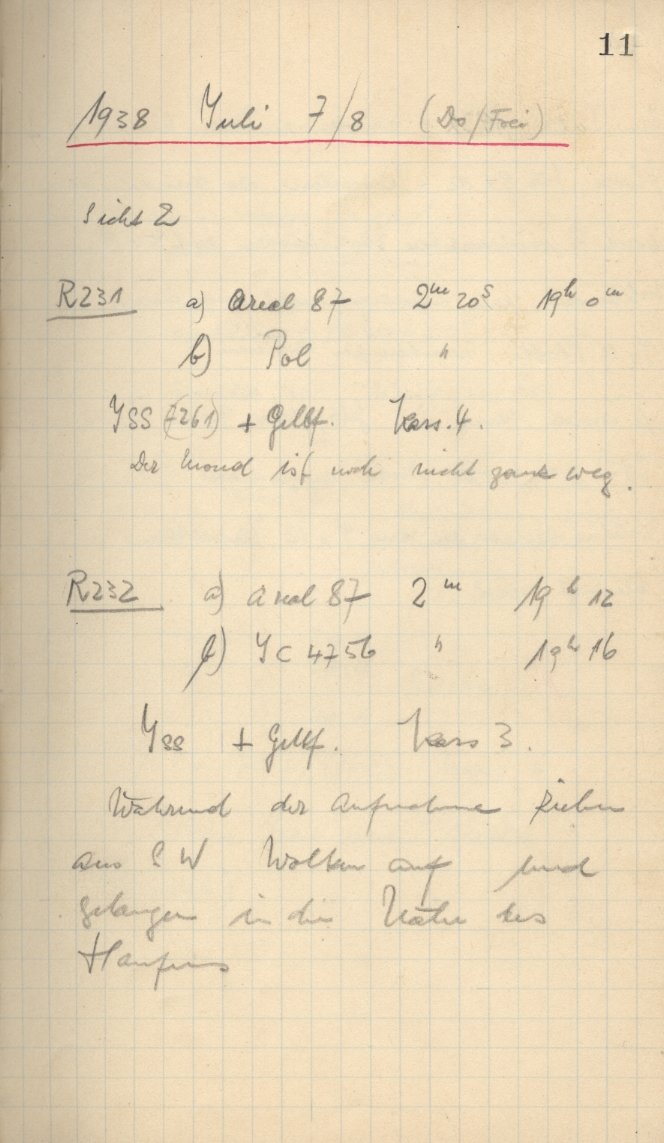 11
1938 Juli 7/8 (Do/Frei)
Sicht 2
R231 a) Areal 87 2ᵐ 20ˢ 19ʰ 0ᵐ
b) Pol "
ISS (7261) + Gelbf. Kass. 4.
Der Mond ist noch nicht ganz weg.
R232 a) Areal 87 2ᵐ 19ʰ 12
b) IC 4756 " 19ʰ 16
Iss + Gelbf. Kass 3.
Während der Aufnahme ziehen
aus SW Wolken auf und
gelangen in die Nähe des
Haufens